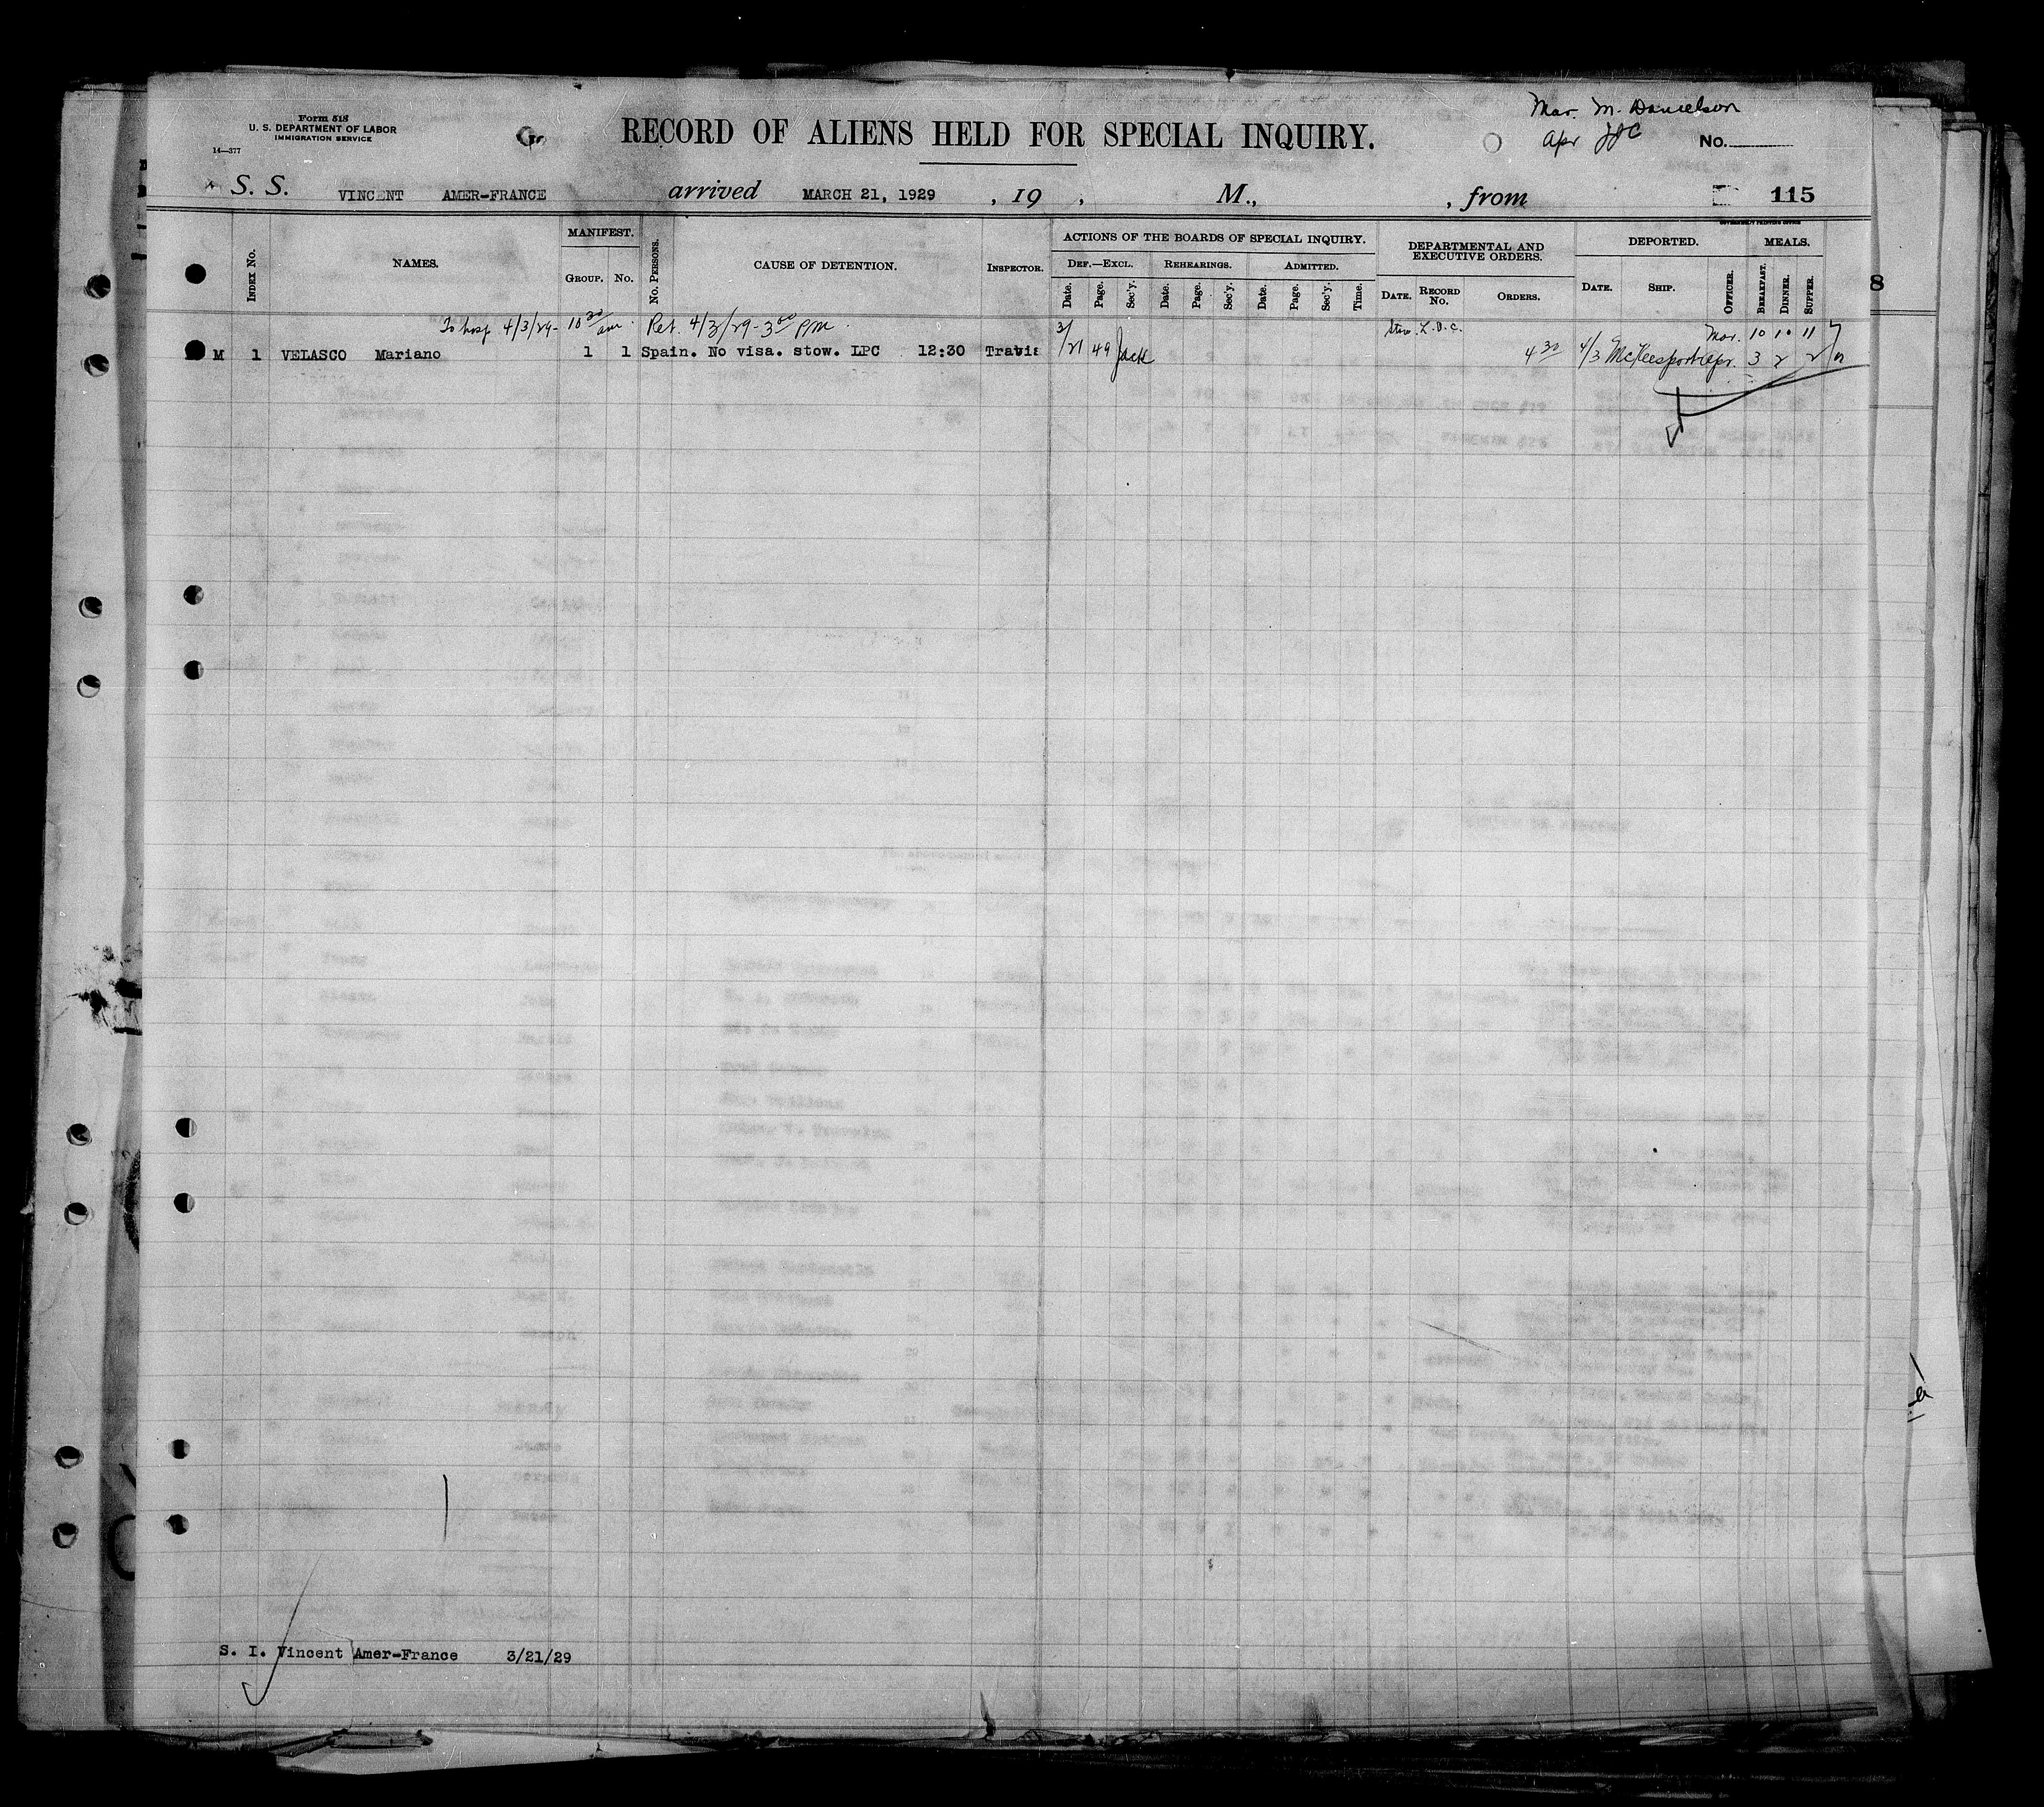 Form 518
U. S. DEPARTMENT OF LABOR
IMMIGRATION SERVICE
14—377
RECORD OF ALIENS HELD FOR SPECIAL INQUIRY.
Mar. M. Danielson
Apr JJC
No.
S. S. VINCENT AMER-FRANCE arrived MARCH 21, 1929 , 19 , M., , from 115
GOVERNMENT PRINTING OFFICE
INDEX No. NAMES. MANIFEST. GROUP. No. No. PERSONS. CAUSE OF DETENTION. INSPECTOR.
ACTIONS OF THE BOARDS OF SPECIAL INQUIRY.
DEF.—EXCL. REHEARINGS. ADMITTED.
Date. Page. Sec'y. Date. Page. Sec'y. Date. Page. Sec'y. Time.
DEPARTMENTAL AND EXECUTIVE ORDERS.
DATE. RECORD No. ORDERS.
DEPORTED. DATE. SHIP. OFFICER.
MEALS. BREAKFAST. DINNER. SUPPER.
To hosp 4/3/29- 10 30 am. Ret. 4/3/29- 3 00 PM. Stow. L.D.C. Mar. 10 10 11
M 1 VELASCO Mariano 1 1 Spain. No visa. stow. LPC 12:30 Travis 3/21 49 Jack 4 30 4/3 McKeesport Apr. 3 2 2
8
S. I. Vincent Amer-France 3/21/29